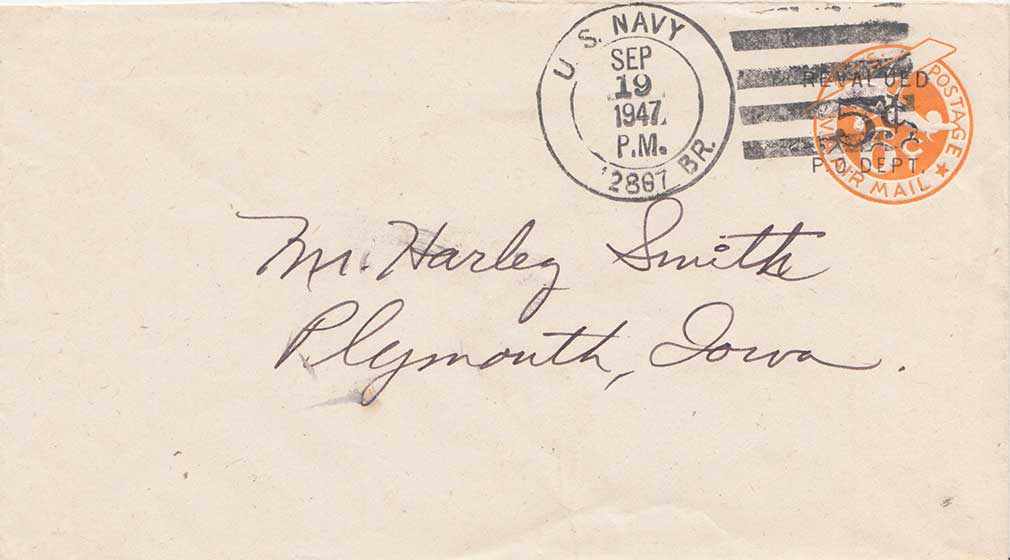 U. S. NAVY
SEP
19
1947
P.M.
12867 BR.
REVALUED
5¢
P.O. DEPT.
U.S. POSTAGE
VIA AIR MAIL
Mr. Harley Smith
Plymouth, Iowa.